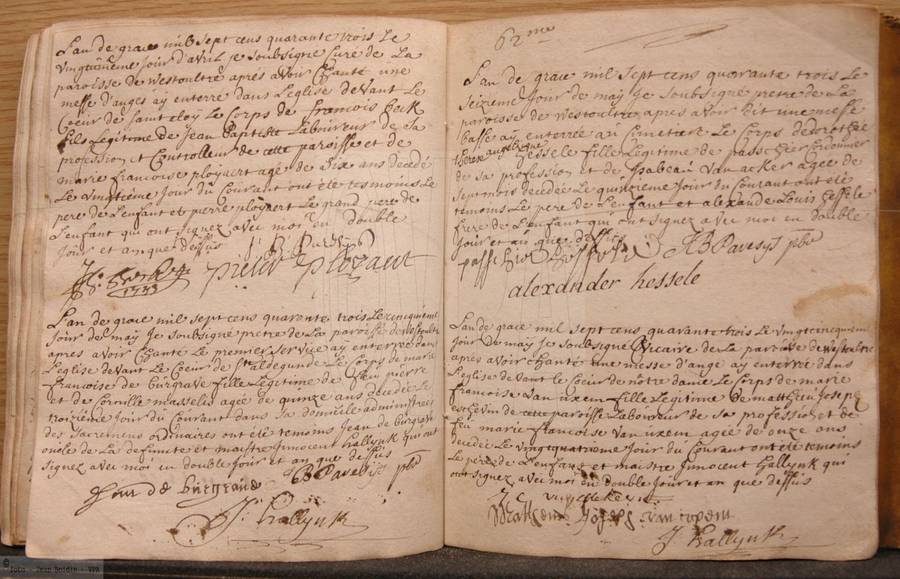 L'an de grace mil sept cens quarante trois Le
vingtunême jour d'avril je soubsigné curé de La
paroisse de Westoultre apres avoir chanté une
messe d'anges ay enterré dans L'eglise devant Le
Coeur de saint eloy Le Corps de francois
fils Legitime de Jean Baptiste Laboureur de sa
profession et Controlleur de cette paroisse et de
marie francoise ployaert agé de six ans decedé
Le vingtième jour du Courant ont été tesmoins Le
pere de L'enfant et pierre ployaert Le grand pere de
L'enfant qui ont signez avec moi en double
jour et an que dessus
pieter ployaert
1743
L'an de grace mil sept cens quarente trois Le cincquiême
jour de may je soubsigné pretre de La paroisse de Westoultre
apres avoir Chanté Le premier service ay enterré dans
L'eglise devant Le Coeur de st aldegunde Le Corps de marie
francoise de burgrave fille Legitime de
et de Cornille masselis agée de quinze ans decedée Le
troizième jour du Courant dans sa domicile administrée
des Sacremens ordinaires ont été temoins Jean de burgrave
oncle de La defuncte et maistre Innocent hallynk qui ont
signez avec moi en double jour et an que dessus
de burgrave BPavesis pbr
J: hallynk
62me
L'an de grace mil sept cens quaranta trois Le
seizième jour de may je soubsigné pretre de La
paroisse de Westoultre apres avoir dit une messe
basse ay enterrée au Cimetiere Le Corps de dorothée
therese angelique
hessele fille Legitime de passchier Cordonnier
de sa profession et de Isabeau van acker agée de
sept mois decedée Le quinzième jour du Courant ont été
temoins Le pere de L'enfant et alexandre Louis hessele
frere de L'enfant qui ont signez avec moi en double
jour et an que dessus
BPavesys pbr
alexander hessele
L'an de grace mil sept cens quarante trois Le vingtcincquieme
jour de may je soubsigné vicaire de La paroisse de Westoultre
apres avoir chanté une messe d'ange ay enterré dans
L'eglise devant le Coeur de notre dame Le Corps de marie
francoise van uxem fille Legitime de matthieu Joseph
eschevin de cette paroisse Laboureur de sa profession et de
feu marie francoise van uxem agée de onze ans
decedée Le vingtquatrième jour du Courant ont été temoins
Le pere de L'enfant et maistre Innocent hallynk qui
ont signez avec moi en double jour et an que dessus
Joseph van
J: hallynk